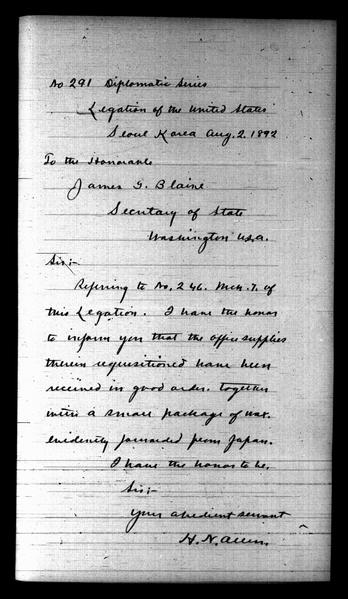 No 291 Diplomatic Series
Legation of the United States
Seoul Korea Aug. 2. 1892
To the Honorable
James G. Blaine
Secretary of State
Washington U.S.A.
Sir;-
Referring to No. 246. Mch. 7. of
this Legation. I have the honor
to inform you that the office supplies
therein requisitioned have been
received in good order. together
with a small package of wax.
evidently forwarded from Japan.
I have the honor to be.
Sir;-
Your obedient servant
H. N. Allen.